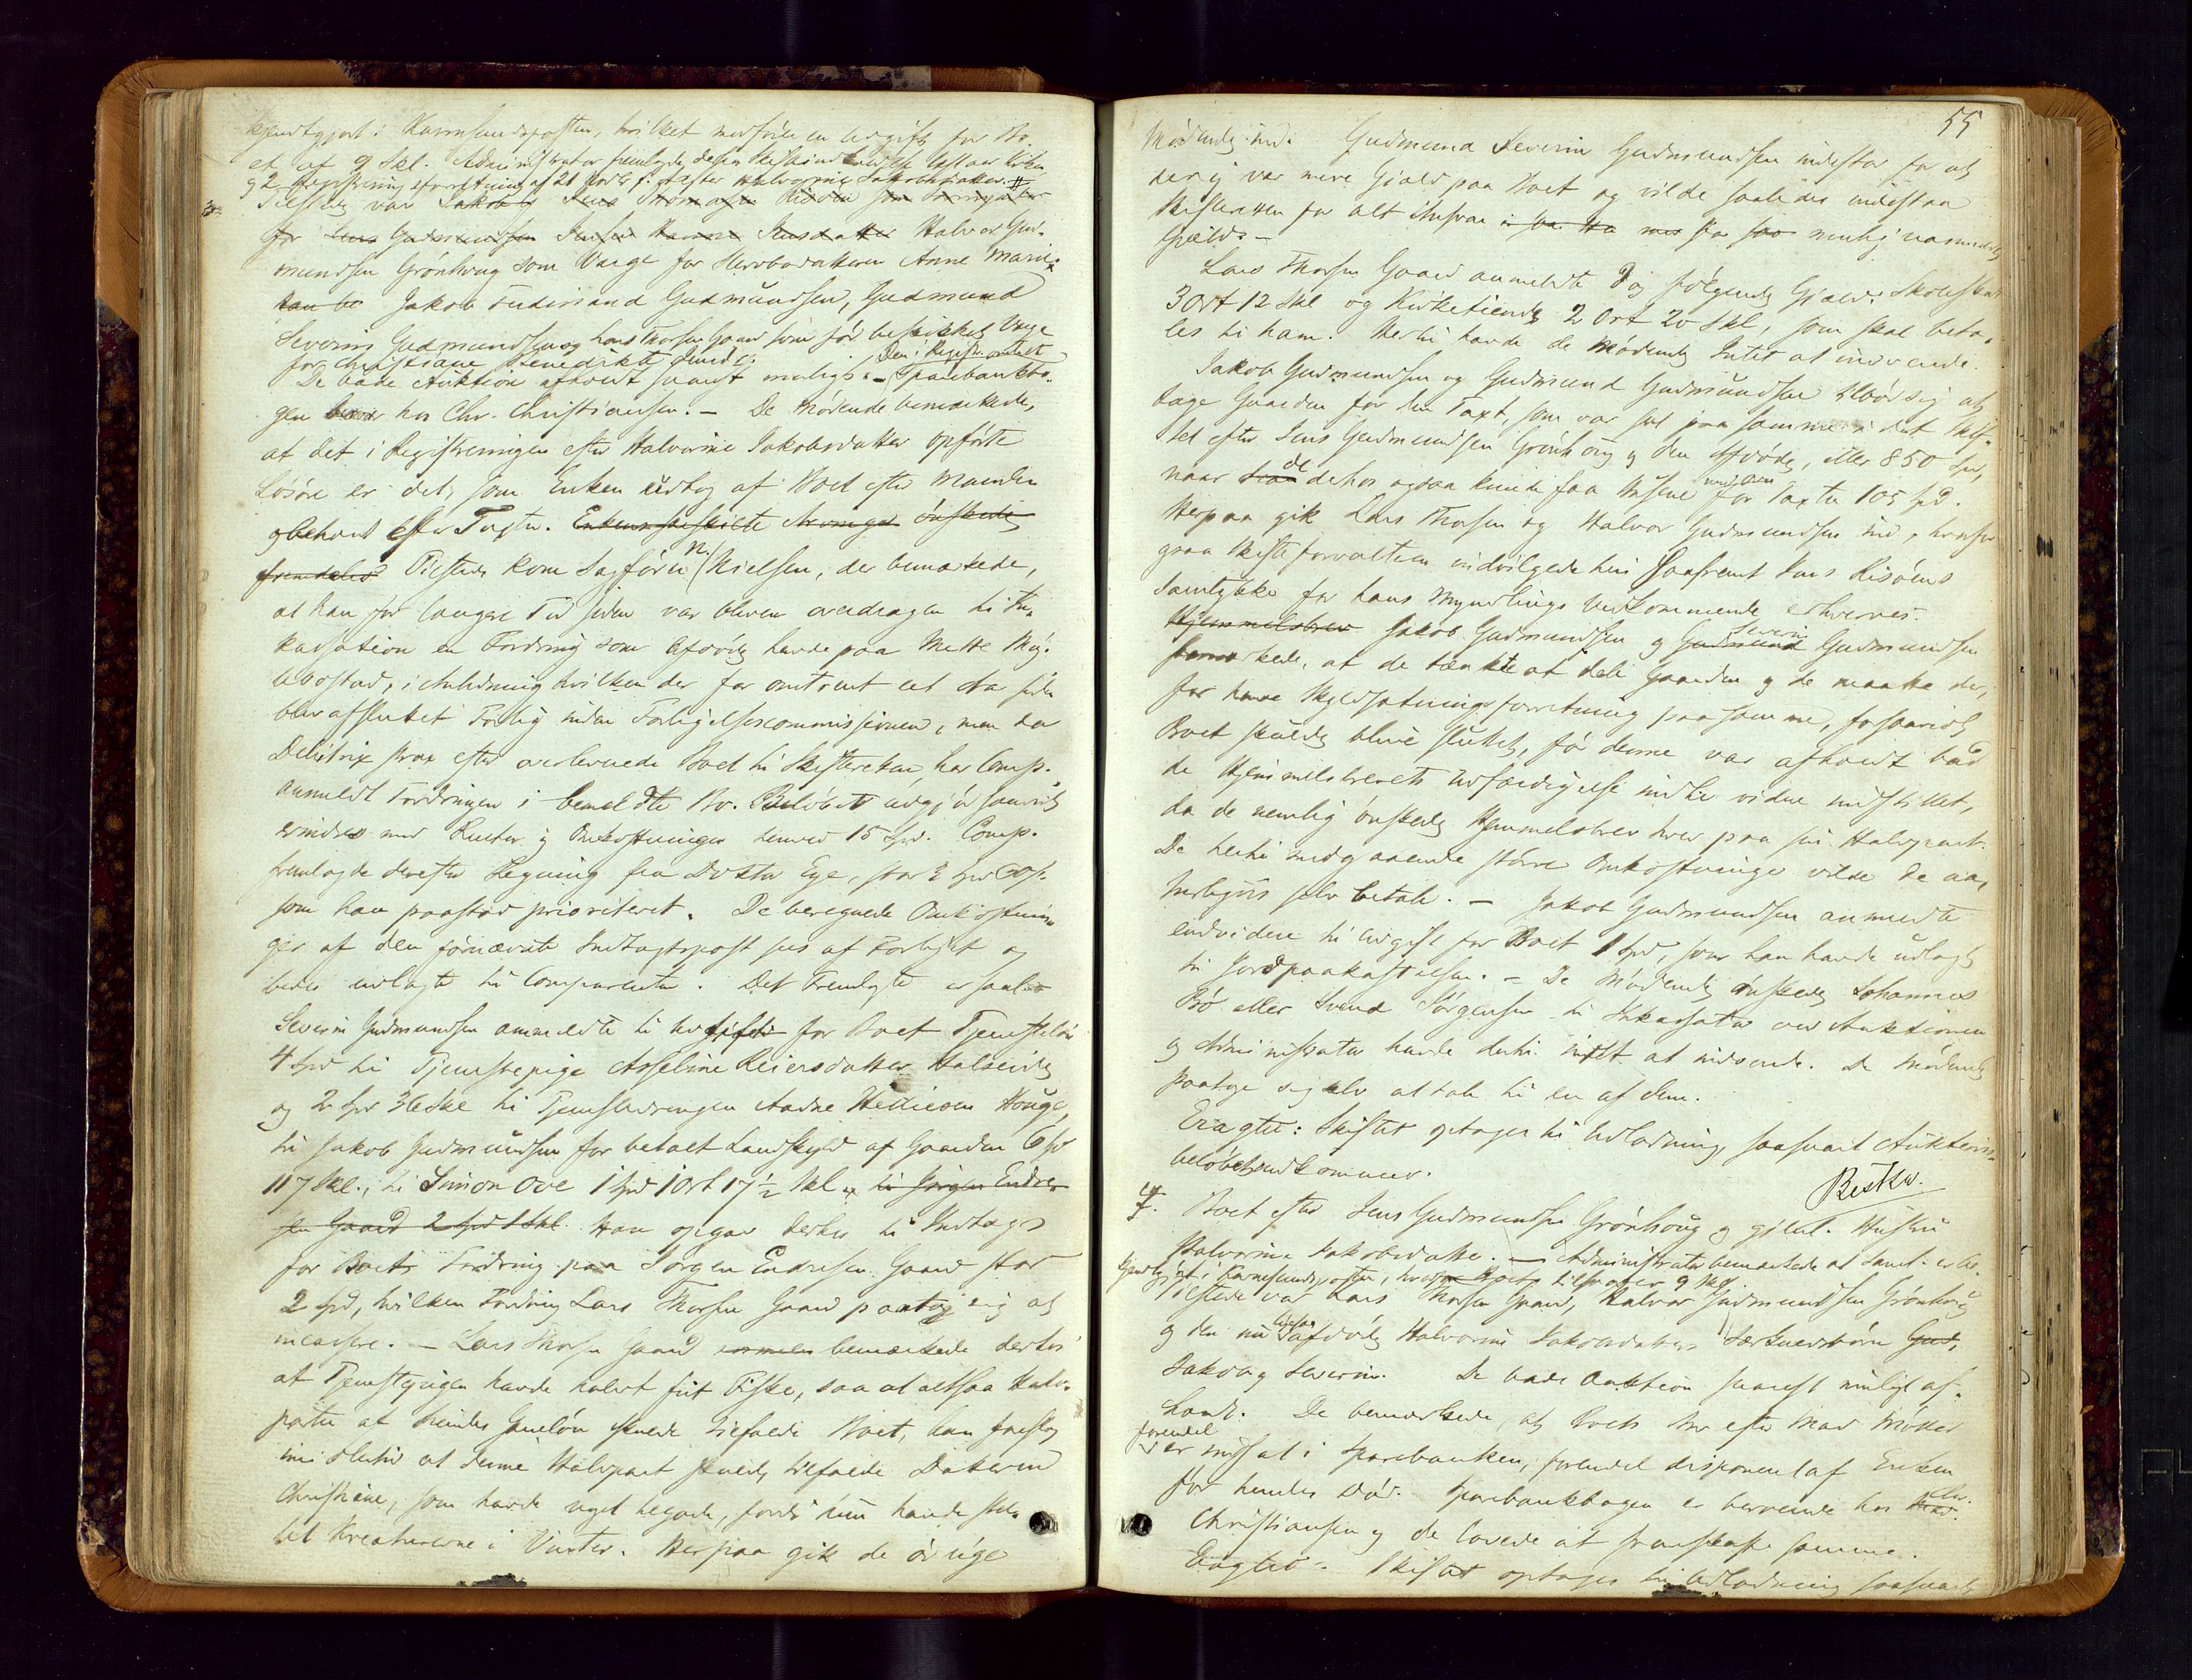 kjendtgjort i Karmsundsposten, hvilket medfører en Udgift for Bo-
et af 9 Skl. Administrator fremlagde
g 2, Registreringsforretning af 21 f. A. efter Halvorine Jakobsdatter. #
3. Tilstede var Jakob Jens Thomasen Risøen som Formynder
for Jens Gudmundsen Jensine Hanne Jensdatter Halvor Gud-
mundsen Grønhoug som Værge for Stervbodatteren Anne Marie.
Jakob Ferdinand Gudmundsen, Gudmund
Severin Gudmundsen og Lars Thorsen Gaard som før beskikket Værge
for Christiane Benedikte Jensd.
De bade Auktion afholdt snarest muligt. – Den i Registr. omtalte Sparebankbo-
gen beror hos Chr. Christiansen. – De Mødende bemærkede,
at det i Registreringen efter Halvorine Jakobsdatter opførte
Løsøre er det, som Enken udtog af Boet efter Manden
og beholdt efter Taxten. Enkens Arvinger ønskede
fremdeles Tilstede kom Sagfører N. Nielsen, der bemærkede,
at han for længere Tid siden var bleven overdragen til In-
kassation en Fordring som Afdøde havde paa Mette
i Anledning hvilken der for omtrent et Aar siden
blev afsluttet Forlig inden Forligelsescommissionen, men da
Debitrix strax efter overleverede Boet til Skifteretten, har Comp.
anmeldt Fordringen i bemeldte Bo. Beløbet udgjør saavidt
erindres med Renter og Omkostninger henved 15 Spd. Comp.
fremlagde derefter Regning fra Doktor Ege, stor 2 Spd
som han paastod prioriteret. De beregnede Omkostnin-
ger af den førnævnte Indtægtspost sees af Forliget og
bedes udlagte til Comparenten. Det Fremlagte er saal.
Severin Gudmundsen anmeldte til Udgift for Boet Tjenesteløn
4 Spd til Tjenestepige Asseline Reiersdatter Halseide
og 2 Spd 36 Skl til Tjenestedrengen Aadne Houge,
til Jakob Gudmundsen for betalt Landskyld af Gaarden 6 Spd
117 Skl., til Simon Ove 1 Spd 1 Ort 17 ½ Skl. til Jørgen Endre-
sen Gaard 2 Spd 1 Skl. Han opgav derhos til Indtægt
for Boet Fordring paa Jørgen Endresen Gaard stor
2 Spd, hvilken Fordring Lars Thorsen Gaard paatog sig at
incassere. – Lars Thorsen Gaard bemærkede derhos
at Tjenestepigen havde holdt frit Fiske, saa at altsaa Halv-
parten af hendes skulde tilfalde Boet, han foreslog
imidlertid at denne Halvpart skulde tilfalde Datteren
Christiane, som havde noget tilgode, fordi hun havde stel-
let Kreaturerne i Vinter. Herpaa gik de øvrige
55
Mødende ind. Gudmund Severin Gudmundsen indestod for at
der ej var mere Gjæld paa Boet og vilde saaledes indestaa
Skifteretten for alt Ansvar mulig
Gjæld. –
Lars Thorsen Gaard anmeldte dog følgende Gjæld: Skoleskat
3 Ort 12 Skl og Kirketiende 2 Ort 20 Skl, som skal beta-
les til ham. Hertil havde de Mødende Intet at indvende.
Jakob Gudmundsen og Gudmund Gudmundsen tilbød sig at
tage Gaarden for den Taxt, som var sat paa samme i det Skif-
tet efter Jens Gudmundsen Grønhoug og den Afdøde, eller 850 Spd,
naar de derhos ogsaa kunde faa Husene for Taxten 105 Spd.
Herpaa gik Lars Thorsen og Halvor Gudmundsen ind, hvorfor
ogsaa Skifteforvalteren indvilgede heri saafremt Jens Risøens
Samtykke for hans Myndlings Vedkommende erhverves.
Hjemmelsbrev Jakob Gudmundsen og Gudmund Severin Gudmundsen
bemærkede, at de tænkte at dele Gaarden og de maatte der-
for have Skyldsætningsforretning paa samme, forsaavidt
Boet skulde blive sluttet, før denne var afholdt bad
de Hjemmelsbrevets Udfærdigelse indtil videre indstillet,
da de nemlig ønskede Hjemmelsbrev hver paa sin Halvpart.
De hertil medgaaende større Omkostninger vilde de na-
turligvis selv betale. – Jakob Gudmundsen anmeldte
endvidere til Udgift for Boet 1 Spd, som han havde udlagt
til Jordpaakastelsen. – De Mødende ønskede Johannes
Bø eller Svend Jørgensen til Inkassator ved Auktionen
og Administrator havde dertil intet at indvende. De Mødende
paatog sig selv at tale til en af dem.
Eragtet: Skiftet optages til Udlodning saasnart Auktions-
beløbet indkommer.
BestKv.
4. Boet efter Jens Gudmundsen Grønhoug og gjenl. Hustru
Halvorine Jakobsdatter. – Administrator bemærkede at Saml. er be-
kjendtgjort i Karmsundsposten, hvorfor Boet tilsvarer 9 Skl.
Tilstede var Lars Thorsen Gaard, Halvor Gudmundsen Grønhoug
og den nu ligesaa afdøde Halvorine Jakobsdatters Særkuldsbørn Gud.
Jakob og Severin. De bade Auktion snarest muligt af-
holdt. De bemærkede, at Boets Bo efter Mad. Møller
fordeel er indsat i Sparebanken, forendel disponeret af Enken
før hendes Død. Sparebankbogen er beroende hos Chr.
Christiansen og de lovede at fremskaffe samme.
Eragtet: Skiftet optages til Udlodning saasnart